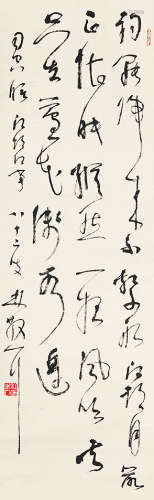 钓罷歸来不繫船江村月落
正堪眠縱然一夜風吹去
只在蘆花淺水邊
司空曙江村即事 八十二叟 林散耳